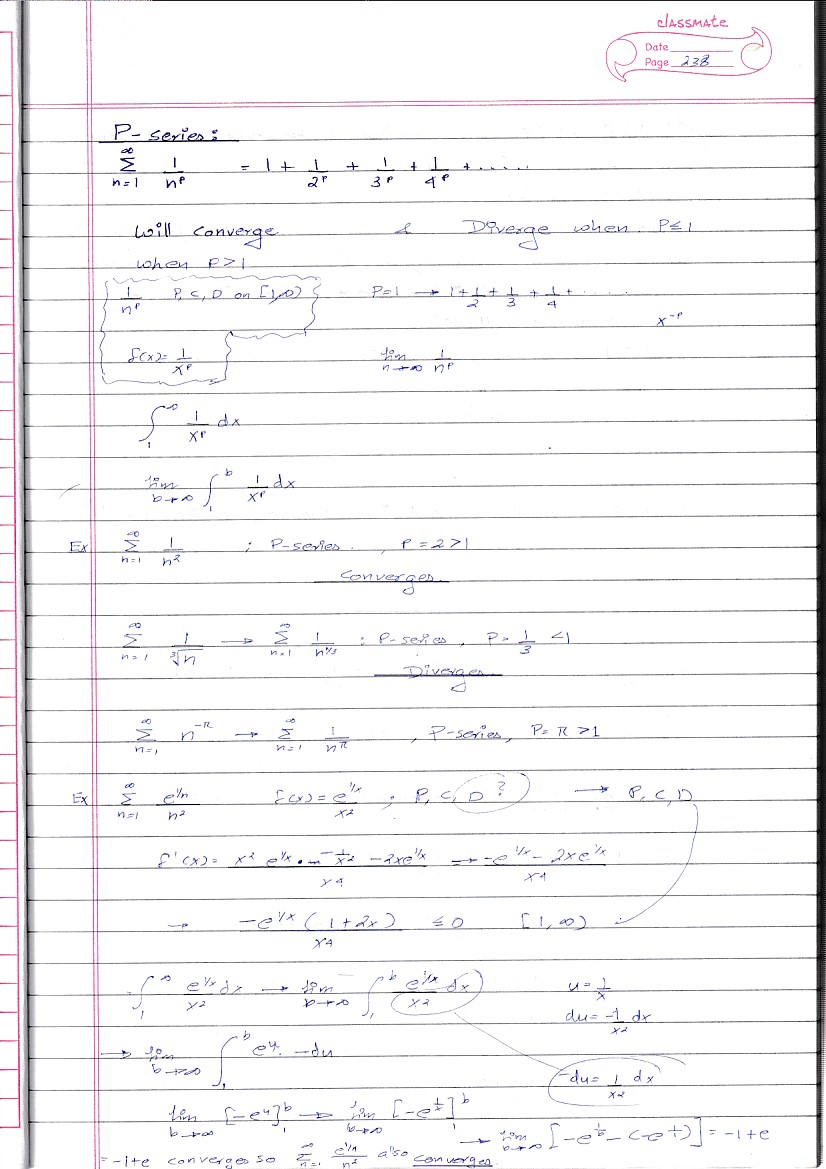 classmate
Date
Page 238
P-series:
∞ Σ n=1 1/n^p = 1 + 1/2^p + 1/3^p + 1/4^p + ......
Will converge & Diverge when P≤1
when P>1
1/n^p P,C,D on [1,∞) P=1 → 1+1/2+1/3+1/4+......
x^-p
f(x)=1/x^p lim n→∞ 1/n^p
∫_1^∞ 1/x^p dx
lim b→∞ ∫_1^b 1/x^p dx
Ex Σ n=1 ∞ 1/n^2 ; P-series. , P=2>1
Converges
Σ n=1 ∞ 1/∛n → Σ n=1 ∞ 1/n^1/3 : P-series, P=1/3 <1
Diverges
Σ n=1 ∞ n^-π → Σ n=1 ∞ 1/n^π , P-series, P=π>1
Ex Σ n=1 ∞ e^1/n/n^2 f(x)=e^1/x/x^2 ; P,C,D? → P,C,D
f'(x)= (x^2 e^1/x · -1/x^2 - 2xe^1/x)/x^4 → (-e^1/x - 2xe^1/x)/x^4
→ -e^1/x(1+2x)/x^4 ≤0 [1,∞)
∫_1^∞ e^1/x dx/x^2 → lim b→∞ ∫_1^b e^1/x/x^2 dx u=1/x
du=-1/x^2 dx
→ lim b→∞ ∫_1^b e^u. -du
-du=1/x^2 dx
lim b→∞ [-e^u]_1^b → lim b→∞ [-e^1/x]_1^b
→ lim b→∞ [-e^1/b-(-e^1/1)]=-1+e
=-1+e converges so Σ n=1 ∞ e^1/n/n^2 also converges.